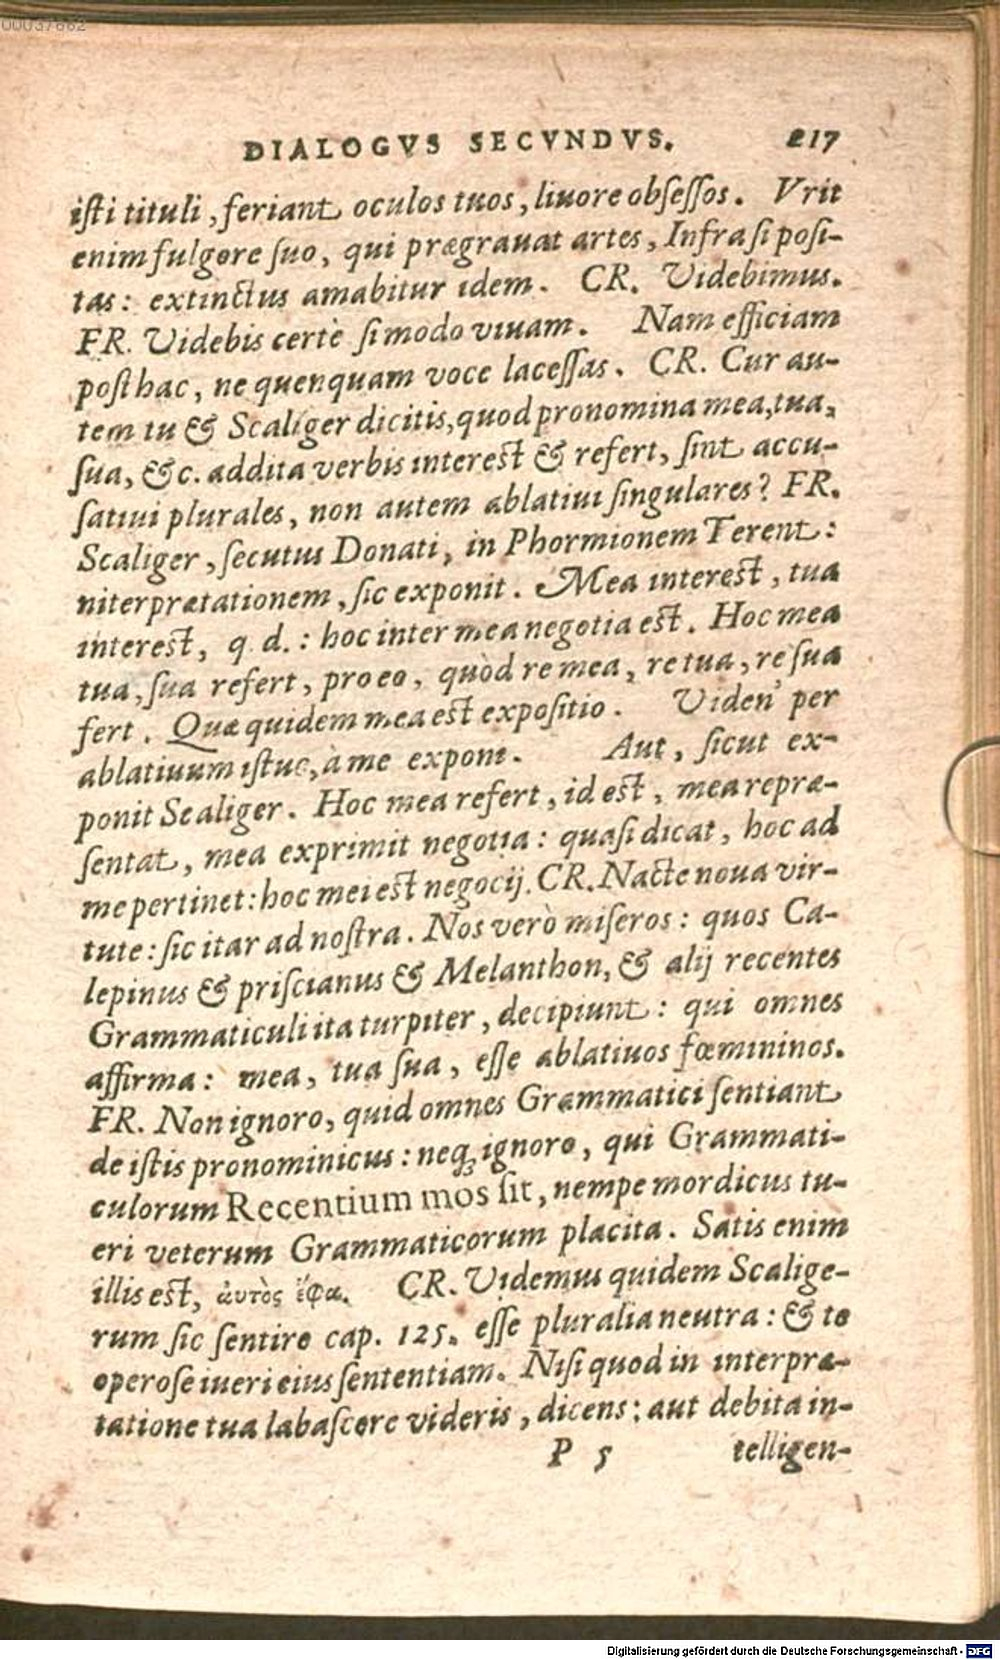 00037662
DIALOGVS SECVNDVS. 217
isti tituli, feriant oculos tuos, liuore obsessos. Vrit
enim fulgore suo, qui prægrauat artes, Infra si posi-
tas: extinctus amabitur idem. CR. Videbimus.
FR. Videbis certè si modo viuam. Nam efficiam
posthac, ne quenquam voce lacessas. CR. Cur au-
tem tu & Scaliger dicitis, quod pronomina mea, tua,
sua, &c. addita verbis interest & refert, sint accu-
satiui plurales, non autem ablatiui singulares? FR.
Scaliger, secutus Donati, in Phormionem Terent:
niterprætationem, sic exponit. Mea interest, tua
interest, q. d.: hoc inter mea negotia est. Hoc mea
tua, sua refert, pro eo, quòd re mea, re tua, re sua
fert. Quæ quidem mea est expositio. Viden' per
ablatiuum istuc, à me exponi. Aut, sicut ex-
ponit Scaliger. Hoc mea refert, id est, mea repræ-
sentat, mea exprimit negotia: quasi dicat, hoc ad
me pertinet: hoc mei est negocij. CR. Nacte noua vir-
tute: sic itar ad nostra. Nos verò miseros: quos Ca-
lepinus & priscianus & Melanthon, & alij recentes
Grammaticuli ita turpiter, decipiunt: qui omnes
affirma: mea, tua sua, esse ablatiuos fœmininos.
FR. Non ignoro, quid omnes Grammatici sentiant
de istis pronominicus: neq; ignoro, qui Grammati-
culorum Recentium mos sit, nempe mordicus tu-
eri veterum Grammaticorum placita. Satis enim
illis est, ἀυτὸς ἔφα. CR. Videmus quidem Scalige-
rum sic sentire cap. 125. esse pluralia neutra: & te
operose iueri eius sententiam. Nisi quod in interpræ-
tatione tua labascere videris, dicens: aut debita in-
P 5 telligen-
Digitalisierung gefördert durch die Deutsche Forschungsgemeinschaft - DFG